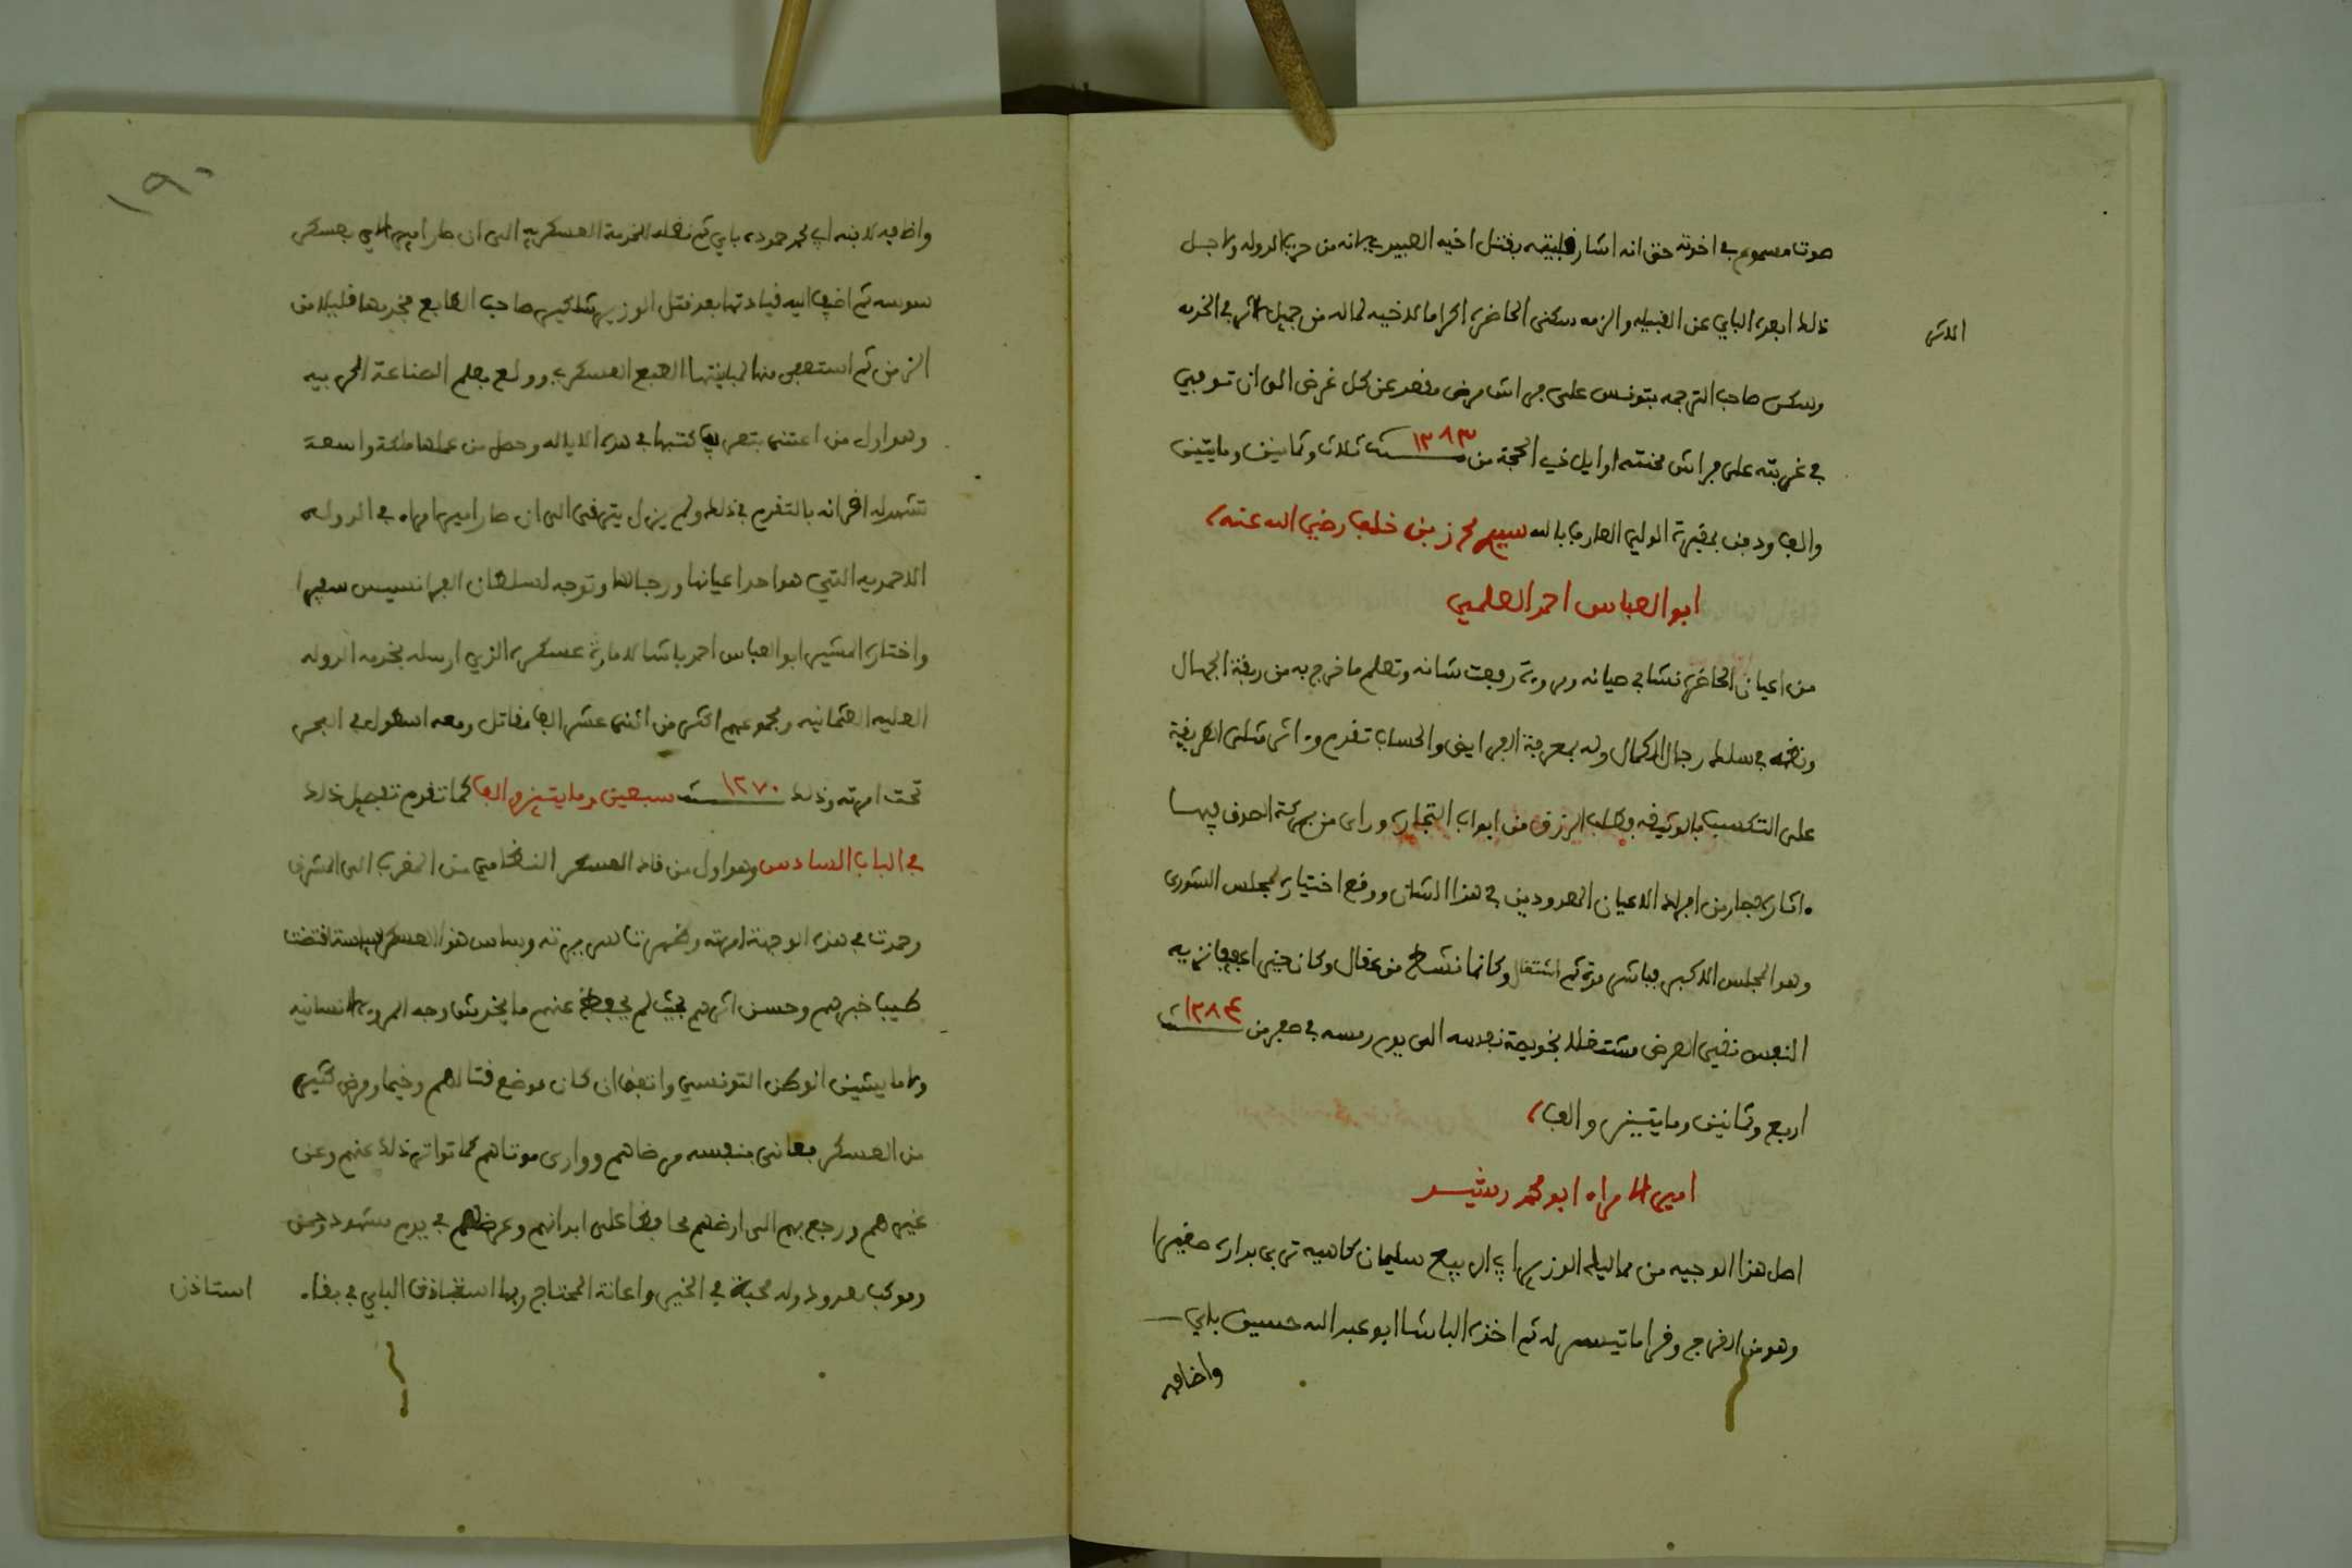 صوت مسموع في اخوته حتى انه اشار فليقه بقتل اخيه الصبير لانه من حرب الدوله ولاجل
ذلك ابعده الباي عن القبيله والزمه سكنى الحاضره اكراما لاخيه لما له من جميل الاثر في الخدمه
الاثر
وسكن صاحب الترجمه بتونس على فراش مرض مقعد عن كل غرض الى ان توفي
في غربته على فراش محنته اوايل ذي الحجة من سنة ١٢٨٣ ثلاث وثمانين ومايتين
والف ودفن بمقبرة الولي العارف بالله سيدي محرز بن خلف رضي الله عنه
ابو العباس احمد العلمي
من اعيان الحاضره نشا في صيانه ومروءة رفعت شانه وتعلم ما خرج به من ربقة الجهال
ونظمه في سلك رجال الكمال وله بمعرفة الفرايض والحساب تقدم واثر مثلى الطريقة
على التكسب بالوظيفه وطلب الرزق من ابواب التجاره وراى من بركة الصدق فيها
ما اثاره فصار من افراد الاعيان المعدودين في هذا الشان ووقع اختياره لمجلس الشورى
وهو المجلس الاكبر فباشر مدة ثم اشتغال وكانما نشط من عقال وكان خيرا عفيفا نزيه
النفس نقي العرض مشتغلا بخويصة نفسه الى يوم رمسه في صفر من سنة ١٢٨٤
اربع وثمانين ومايتين والف
امير الامراء ابو محمد رشيد
اصل هذا الوجيه من مماليك الوزير ابي الربيع سليمان كاهيه تربى بداره صغيرا
وهو من الفرج وقرا ما تيسر له ثم اخذه الباشا ابو عبد الله حسين باي
واضافه
١٩٠
واضافه لابنه ابي محمد حموده باي ثم نقله للخدمة العسكريه الى ان صار امير الاي بعسكر
سوسه ثم اضيف اليه قيادتها بعد قتل الوزير شاكير صاحب الطابع فخدمها قليلا من
الزمن ثم استعفى منها لمباينتها الطبع العسكري وولع بعلم الصناعة الحربيه
وهو اول من اعتنى بتعريب كتبها في هذه الايالة وحصل من عملها ملكة واسعة
تشهد له اقرانه بالتقدم في ذلك ولم يزل يترقى الى ان صار امير امراء في الدوله
الاحمديه التي هو احد اعيانها ورجالها وتوجه لسلطان الفرانسيس سفيرا
واختاره المشير ابو العباس احمد باشا لامارة عسكره الذي ارسله بخدمه الدوله
العليه العثمانيه ومجموعهم اكثر من اثنى عشر الف مقاتل ومعه اسطول في البحر
تحت امرته وذلك سنة ١٢٧٠ سبعين ومايتين والف كما تقدم تفصيل ذلك
في الباب السادس وهو اول من قاد العسكر النظامي من المغرب الى المشرق
وحمدت في هذه الوجهة امرته وظهرت تاسر سيرته وساس هذا العسكر سياسة اقتضت
طيب خبرهم وحسن اثرهم بحيث لم يحفظ عنهم ما يخدش وجه المروءة الانسانيه
ولا ما يشين الوطن التونسي واتفق ان كان موضع قتالهم وخيما ومرض كثير
من العسكر فعانى بنفسه مرضاهم ووارى موتاهم كما تواتر ذلك عنهم وعن
غيرهم ورجع بهم الى ارضهم محافظا على ابدانهم وعرضهم في يوم مشهود وحسن
وموكب معدود وله محبة في الخير واعانة المحتاج ربما استغنى اذن الباي في بقاء
استاذن